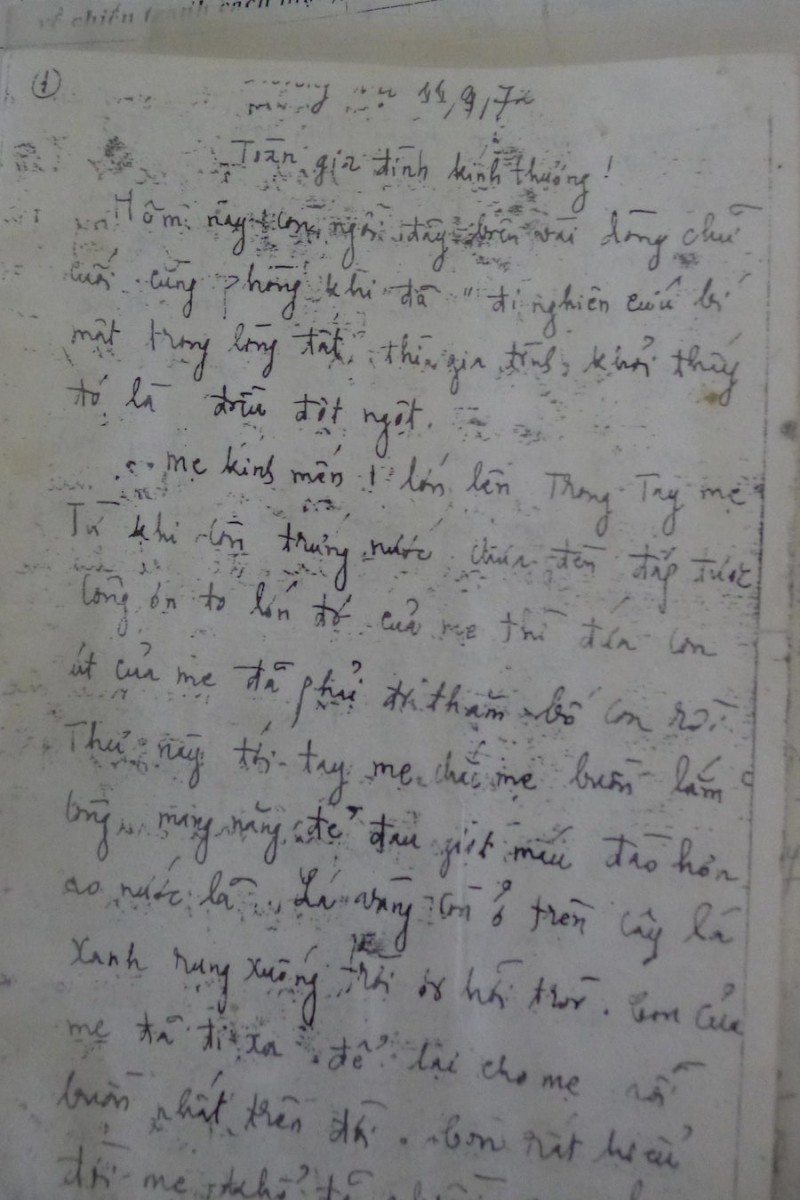 về chiến tranh cách
1
11,9,72
Toàn gia đình kính thương!
Hôm nay con ngồi đây biên vài dòng chữ
cuối cùng phòng khi đã "đi nghiên cứu bí
mật trong lòng đất, thì gia đình khỏi thấy
đó là điều đột ngột.
Mẹ kính mến! lớn lên Trong Tay mẹ
Từ khi còn trứng nước chưa đền đáp được
Công ơn to lớn đó của mẹ thì đứa con
út của mẹ đã phải đi thăm bố con rồi
Thư này tới tay mẹ chắc mẹ buồn lắm
lòng mang nặng đẻ đau giọt máu đào hơn
ao nước lã. Lá vàng còn ở trên cây lá
xanh rụng xuống trời ơi hỡi trời. Con của
mẹ đã đi xa để lại cho mẹ nỗi
buồn nhất trên đời. Con rất hiểu
đời mẹ khổ đã